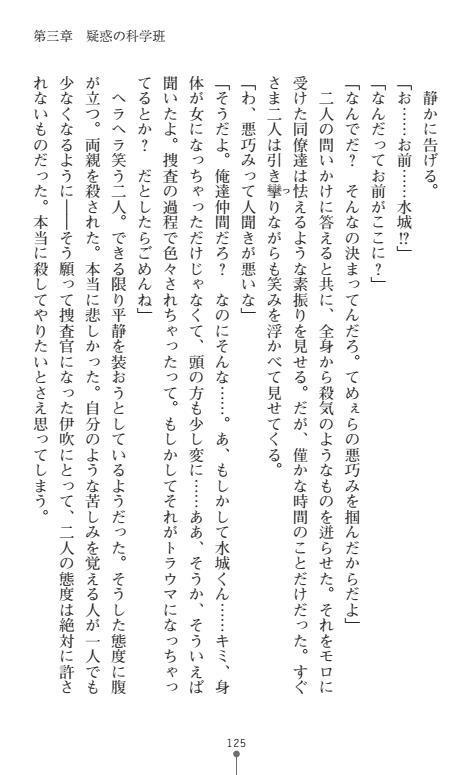 第三章　疑惑の科学班
　静かに告げる。
「お……お前……水城!?」
「なんだってお前がここに?」
「なんでだ?　そんなの決まってんだろ。てめぇらの悪巧みを掴んだからだよ」
　二人の問いかけに答えると共に、全身から殺気のようなものを迸らせた。それをモロに
受けた同僚達は怯えるような素振りを見せる。だが、僅かな時間のことだけだった。すぐ
さま二人は引き攣りながらも笑みを浮かべて見せてくる。
「わ、悪巧みって人聞きが悪いな」
「そうだよ。俺達仲間だろ?　なのにそんな……。あ、もしかして水城くん……キミ、身
体が女になっちゃっただけじゃなくて、頭の方も少し変に……ああ、そうか、そういえば
聞いたよ。捜査の過程で色々されちゃったって。もしかしてそれがトラウマになっちゃっ
てるとか?　だとしたらごめんね」
　ヘラヘラ笑う二人。できる限り平静を装おうとしているようだった。そうした態度に腹
が立つ。両親を殺された。本当に悲しかった。自分のような苦しみを覚える人が一人でも
少なくなるように――そう願って捜査官になった伊吹にとって、二人の態度は絶対に許さ
れないものだった。本当に殺してやりたいとさえ思ってしまう。
125